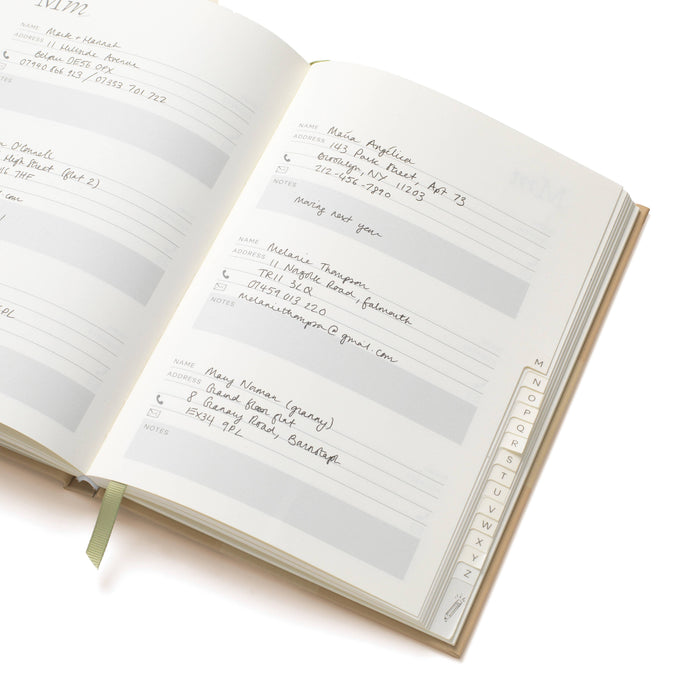 Mm
NAME Mark + Hannah
ADDRESS 11 Hillside Avenue
Belper DE56 0FX
07940 666 923 / 07353 701 722
NOTES
O'Connell
High Street (flat 2)
16 7HF
.com
PL
NAME Maria Angélica
ADDRESS 143 Park Street, Apt 73
Brooklyn, NY 11203
212-456-7890
NOTES
Moving next year
NAME Melanie Thompson
ADDRESS 11 Norfolk Road, falmouth
TR11 3LQ
01459 013 220
melaniethompson@gmail.com
NOTES
NAME Mary Norman (granny)
ADDRESS Ground floor flat
8 Granary Road, Barnstaple
EX34 9PL
NOTES
M
N
O
P
Q
R
S
T
U
V
W
X
Y
Z